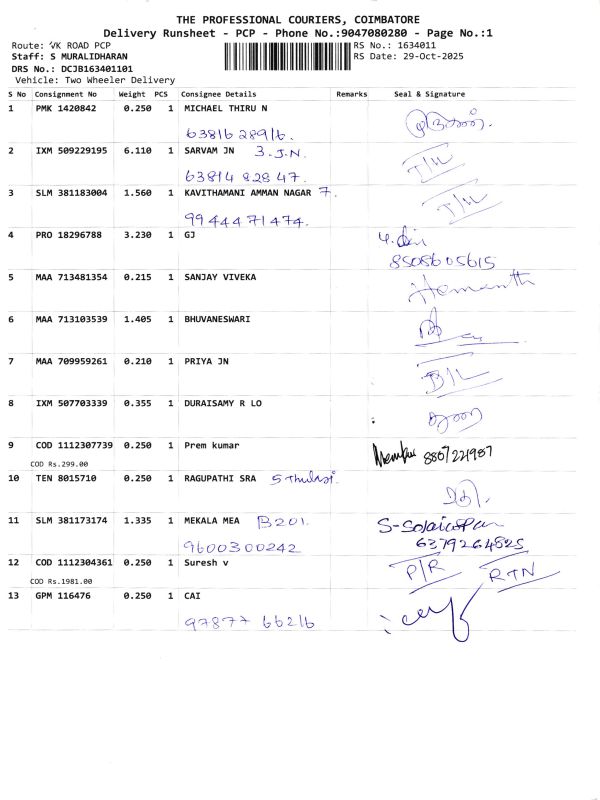 THE PROFESSIONAL COURIERS, COIMBATORE
Delivery Runsheet - PCP - Phone No.:9047080280 - Page No.:1
Route: VK ROAD PCP RS No.: 1634011
Staff: S MURALIDHARAN RS Date: 29-Oct-2025
DRS No.: DCJB163401101
Vehicle: Two Wheeler Delivery
S No Consignment No Weight PCS Consignee Details Remarks Seal & Signature
1 PMK 1420842 0.250 1 MICHAEL THIRU N
63816 28916.
2 IXM 509229195 6.110 1 SARVAM JN 3.J.N. I/W
63814 82847.
3 SLM 381183004 1.560 1 KAVITHAMANI AMMAN NAGAR 7. I/W
99444 71474.
4 PRO 18296788 3.230 1 GJ
8508605615
5 MAA 713481354 0.215 1 SANJAY VIVEKA Hemanth
6 MAA 713103539 1.405 1 BHUVANESWARI
7 MAA 709959261 0.210 1 PRIYA JN B/L
8 IXM 507703339 0.355 1 DURAISAMY R LO
9 COD 1112307739 0.250 1 Prem kumar
COD Rs.299.00
10 TEN 8015710 0.250 1 RAGUPATHI SRA 5 Thulasi.
11 SLM 381173174 1.335 1 MEKALA MEA B201.
9600300242 6379264825
12 COD 1112304361 0.250 1 Suresh v P/R RTN
COD Rs.1981.00
13 GPM 116476 0.250 1 CAI
97877 66216